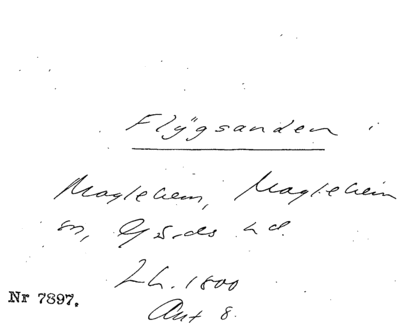 Flÿgsanden i
Maglehem, Maglehem
sn, Gärds hd.
Lh. 1800
Akt 8.
Nr 7897.